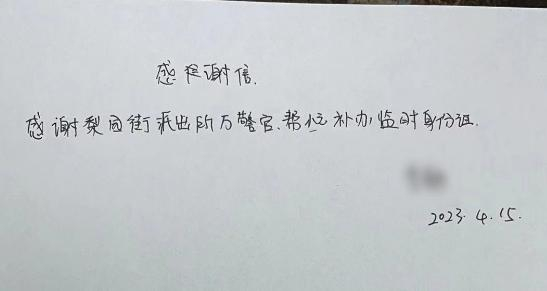 感谢信.
感谢梨园街派出所万警官.帮忙补办临时身份证.
2023.4.15.